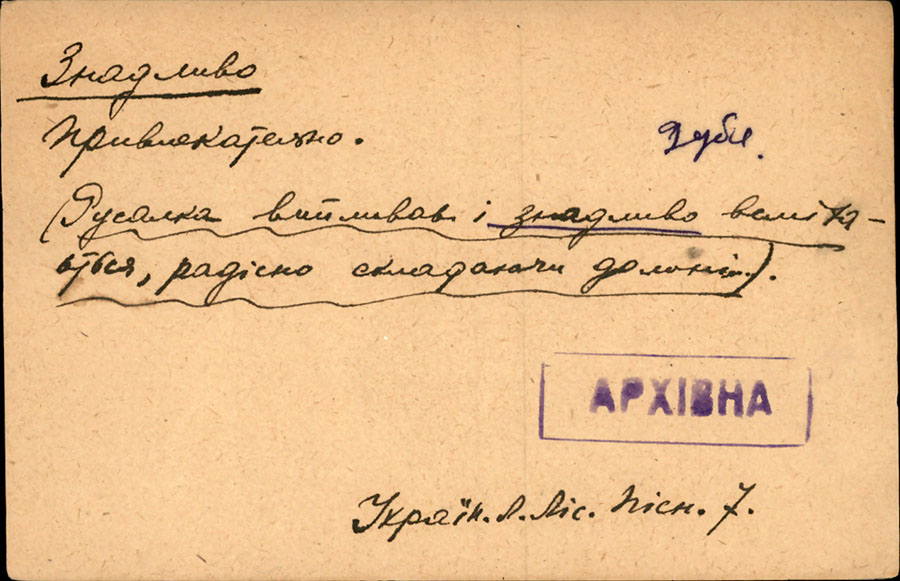 Знадливо
Привлекательно.
Дубл.
(Русалка випливає і знадливо всміха-
ється, радісно складаючи долоні...).
АРХІВНА
Україн. Л. Ліс. Пісн. 7.